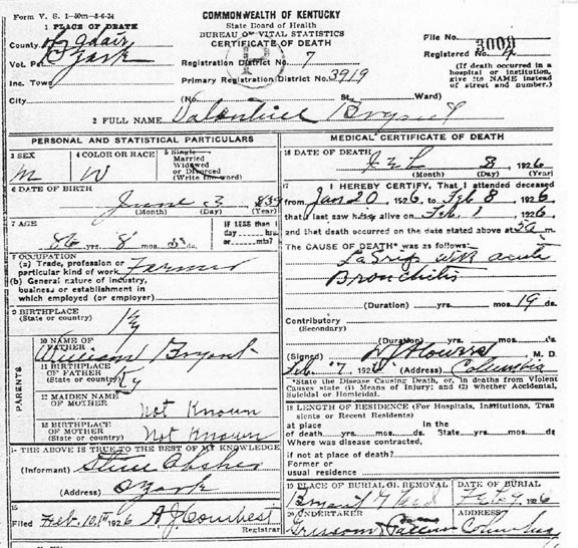 Form V. S. 1-50m-8-6-24
COMMONWEALTH OF KENTUCKY
State Board of Health
BUREAU OF VITAL STATISTICS
CERTIFICATE OF DEATH
1 PLACE OF DEATH
County Adair
Vot. Pct. Ozark
Inc. Town
City
Registration District No. 7
Primary Registration District No. 3919
(No. St., Ward)
File No. 3000
Registered No.
(If death occurred in a
hospital or institution,
give its NAME instead
of street and number.)
2 FULL NAME Valentine Bryant
PERSONAL AND STATISTICAL PARTICULARS
3 SEX
M
4 COLOR OR RACE
W
5 Single
Married
Widowed
or Divorced
(Write the word)
6 DATE OF BIRTH
June 3 839
(Month) (Day) (Year)
7 AGE
86 yrs. 8 mos. ds.
IF LESS than 1
day hrs.
or mts?
8 OCCUPATION
(a) Trade, profession or
particular kind of work Farmer
(b) General nature of industry,
business or establishment in
which employed (or employer)
9 BIRTHPLACE
(State or country) Ky
PARENTS
10 NAME OF
FATHER
William Bryant
11 BIRTHPLACE
OF FATHER
(State or country) Ky
12 MAIDEN NAME
OF MOTHER
Not Known
13 BIRTHPLACE
OF MOTHER
(State or country) Not Known
14 THE ABOVE IS TRUE TO THE BEST OF MY KNOWLEDGE
(Informant) Absher
(Address) Ozark
15
Filed Feb. 10th 1926 A J Conhest
Registrar
MEDICAL CERTIFICATE OF DEATH
16 DATE OF DEATH
Feb 8 1926
(Month) (Day) (Year)
17 I HEREBY CERTIFY, That I attended deceased
from Jan 20 1926, to Feb 8 1926,
that I last saw h alive on Feb. 1 1926,
and that death occurred on the date stated above at m.
The CAUSE OF DEATH* was as follows:
LaGrip with acute
Bronchitis
(Duration) yrs. mos. 19 ds.
Contributory
(Secondary)
(Duration) yrs. mos. ds.
(Signed) M. D.
Feb. 1926 (Address) Columbia
*State the Disease Causing Death, or, in deaths from Violent
Causes state (1) Means of Injury; and (2) whether Accidental,
Suicidal or Homicidal.
18 LENGTH OF RESIDENCE (For Hospitals, Institutions, Tran
sients or Recent Residents)
At place In the
of death yrs. mos. ds. State yrs. mos. ds.
Where was disease contracted,
if not at place of death?
Former or
usual residence
19 PLACE OF BURIAL OR REMOVAL
Bryant
DATE OF BURIAL
Feb 9 1926
20 UNDERTAKER
Grissom
ADDRESS
Columbia